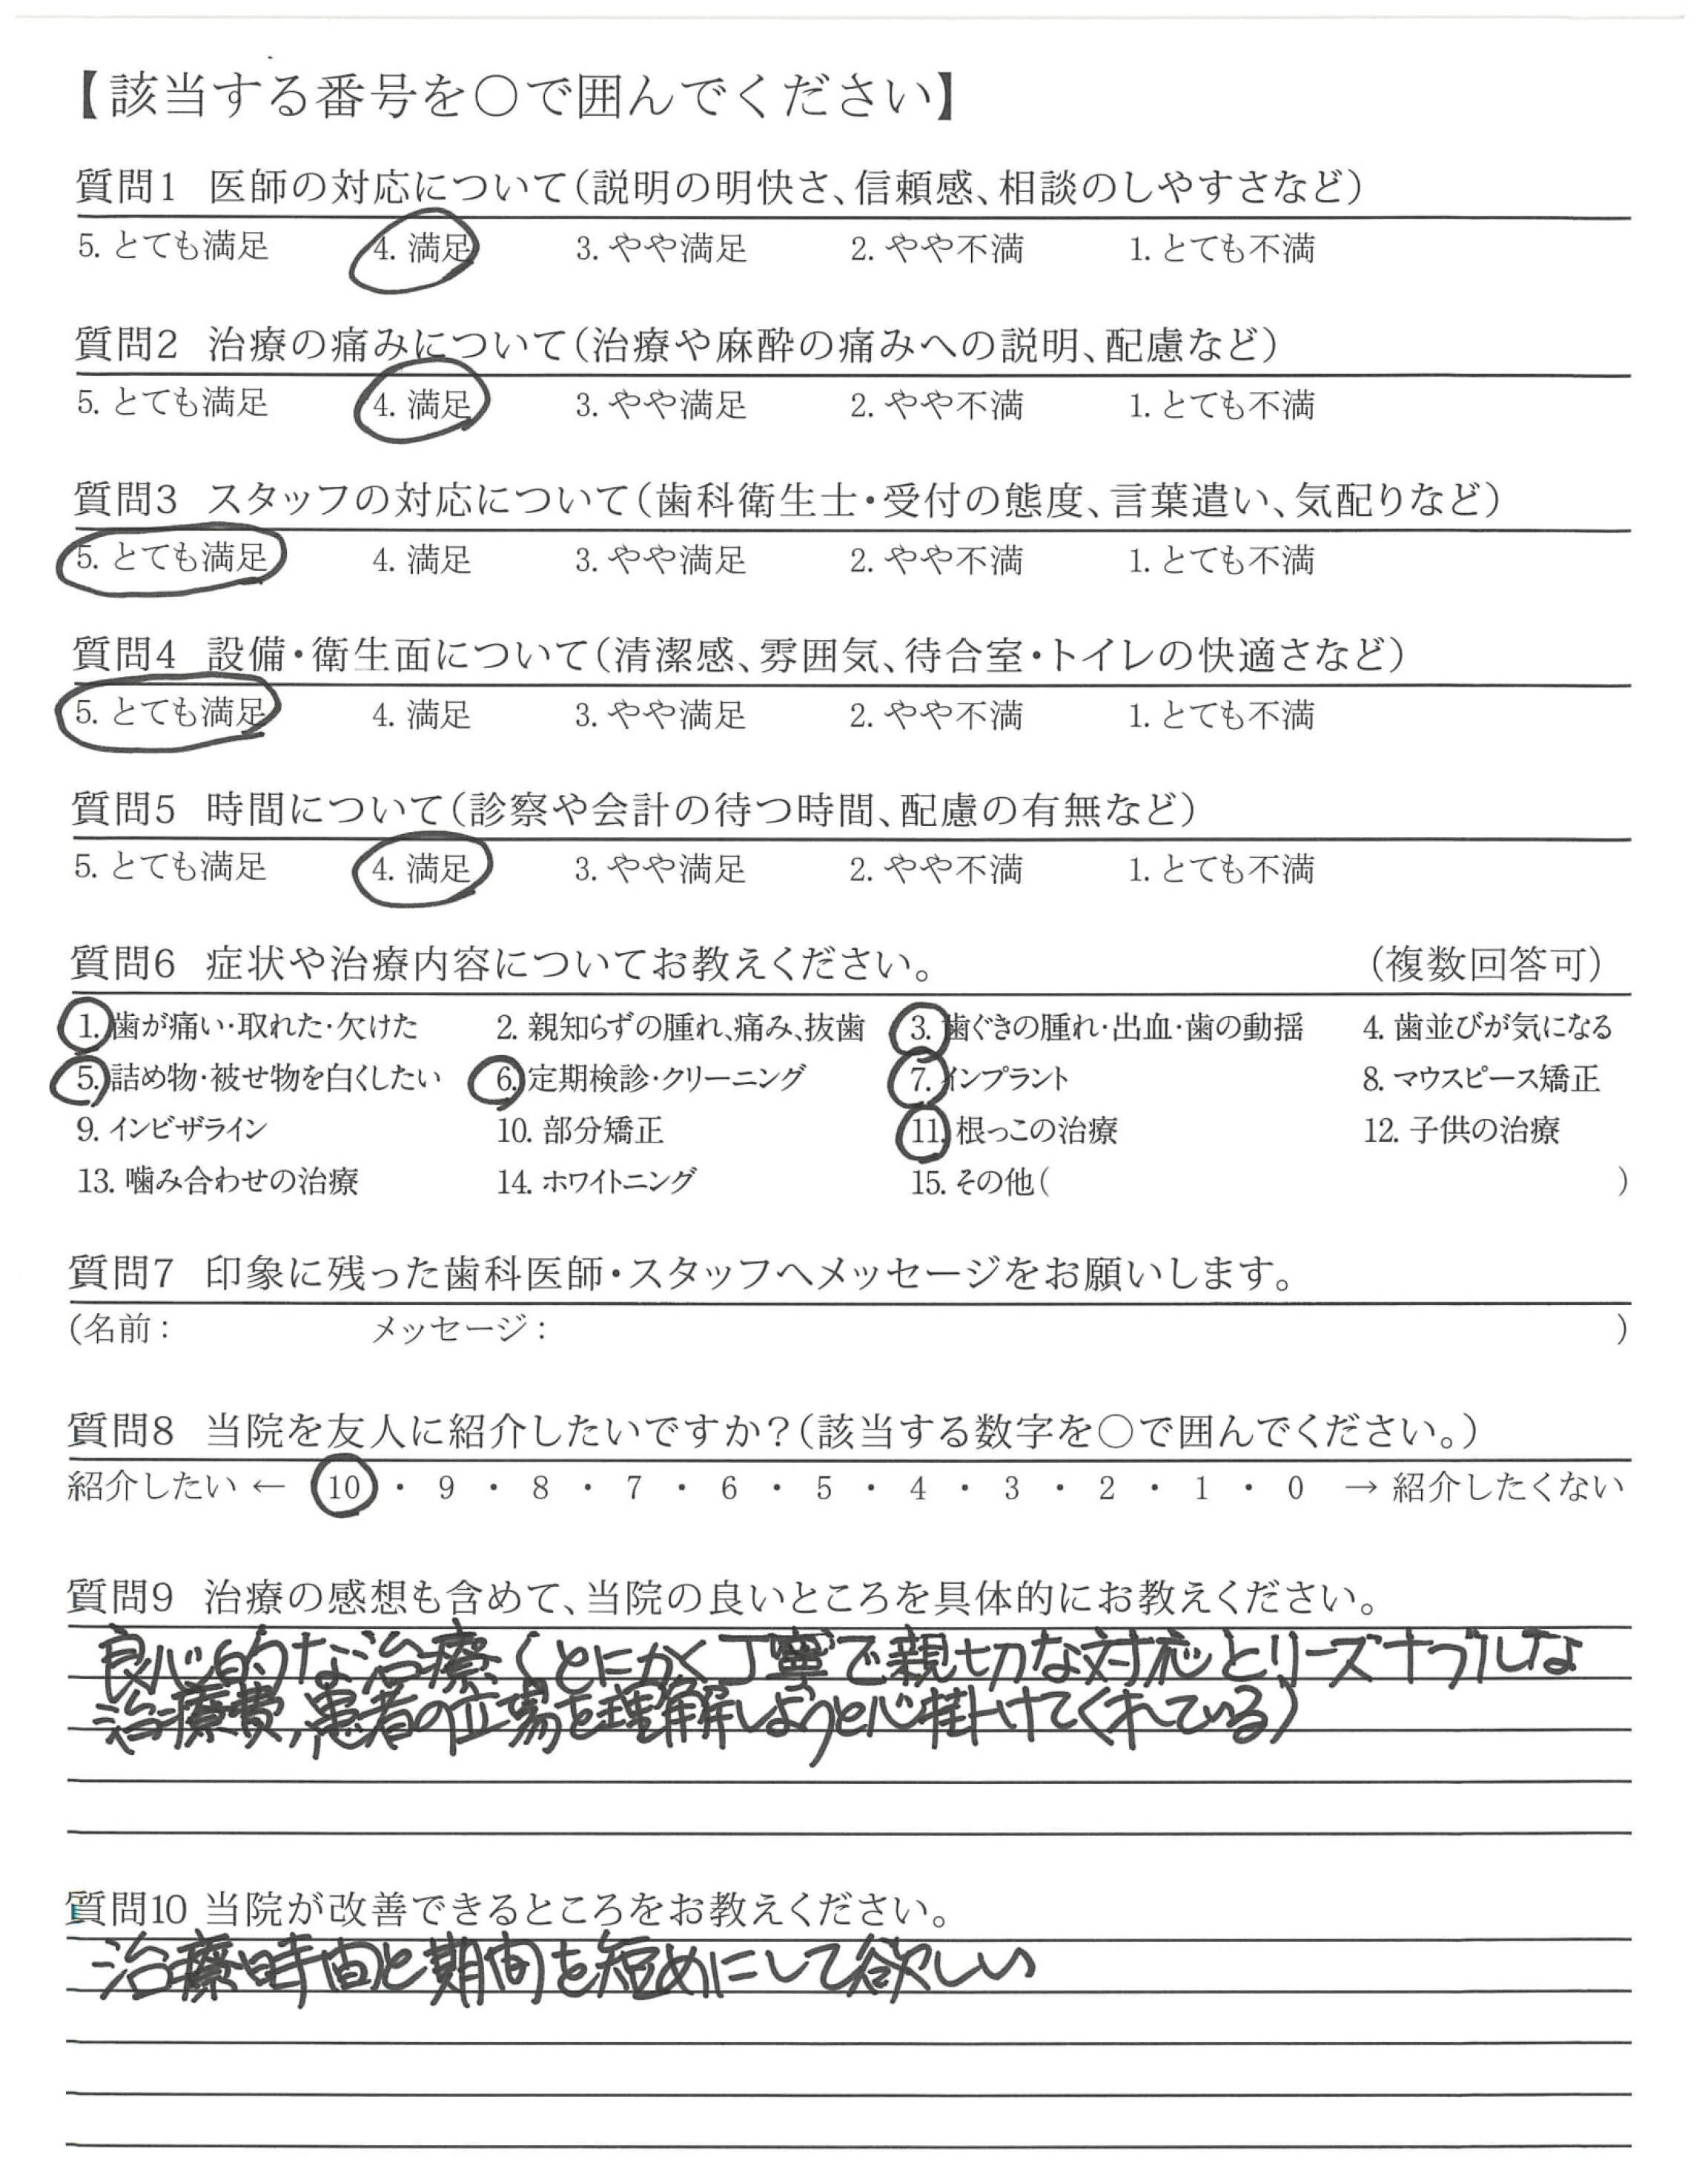 【該当する番号を○で囲んでください】
質問1 医師の対応について(説明の明快さ、信頼感、相談のしやすさなど)
5. とても満足 4. 満足 3. やや満足 2. やや不満 1. とても不満
質問2 治療の痛みについて(治療や麻酔の痛みへの説明、配慮など)
5. とても満足 4. 満足 3. やや満足 2. やや不満 1. とても不満
質問3 スタッフの対応について(歯科衛生士・受付の態度、言葉遣い、気配りなど)
5. とても満足 4. 満足 3. やや満足 2. やや不満 1. とても不満
質問4 設備・衛生面について(清潔感、雰囲気、待合室・トイレの快適さなど)
5. とても満足 4. 満足 3. やや満足 2. やや不満 1. とても不満
質問5 時間について(診察や会計の待つ時間、配慮の有無など)
5. とても満足 4. 満足 3. やや満足 2. やや不満 1. とても不満
質問6 症状や治療内容についてお教えください。 (複数回答可)
1. 歯が痛い・取れた・欠けた 2. 親知らずの腫れ、痛み、抜歯 3. 歯ぐきの腫れ・出血・歯の動揺 4. 歯並びが気になる
5. 詰め物・被せ物を白くしたい 6. 定期検診・クリーニング 7. インプラント 8. マウスピース矯正
9. インビザライン 10. 部分矯正 11. 根っこの治療 12. 子供の治療
13. 噛み合わせの治療 14. ホワイトニング 15. その他( )
質問7 印象に残った歯科医師・スタッフへメッセージをお願いします。
(名前: メッセージ: )
質問8 当院を友人に紹介したいですか?(該当する数字を○で囲んでください。)
紹介したい ← 10 ・ 9 ・ 8 ・ 7 ・ 6 ・ 5 ・ 4 ・ 3 ・ 2 ・ 1 ・ 0 → 紹介したくない
質問9 治療の感想も含めて、当院の良いところを具体的にお教えください。
良心的な治療(とにかく丁寧で親切な対応とリーズナブルな
治療費,患者の立場を理解しようと心掛けてくれている)
質問10 当院が改善できるところをお教えください。
治療時間と期間を短めにして欲しい